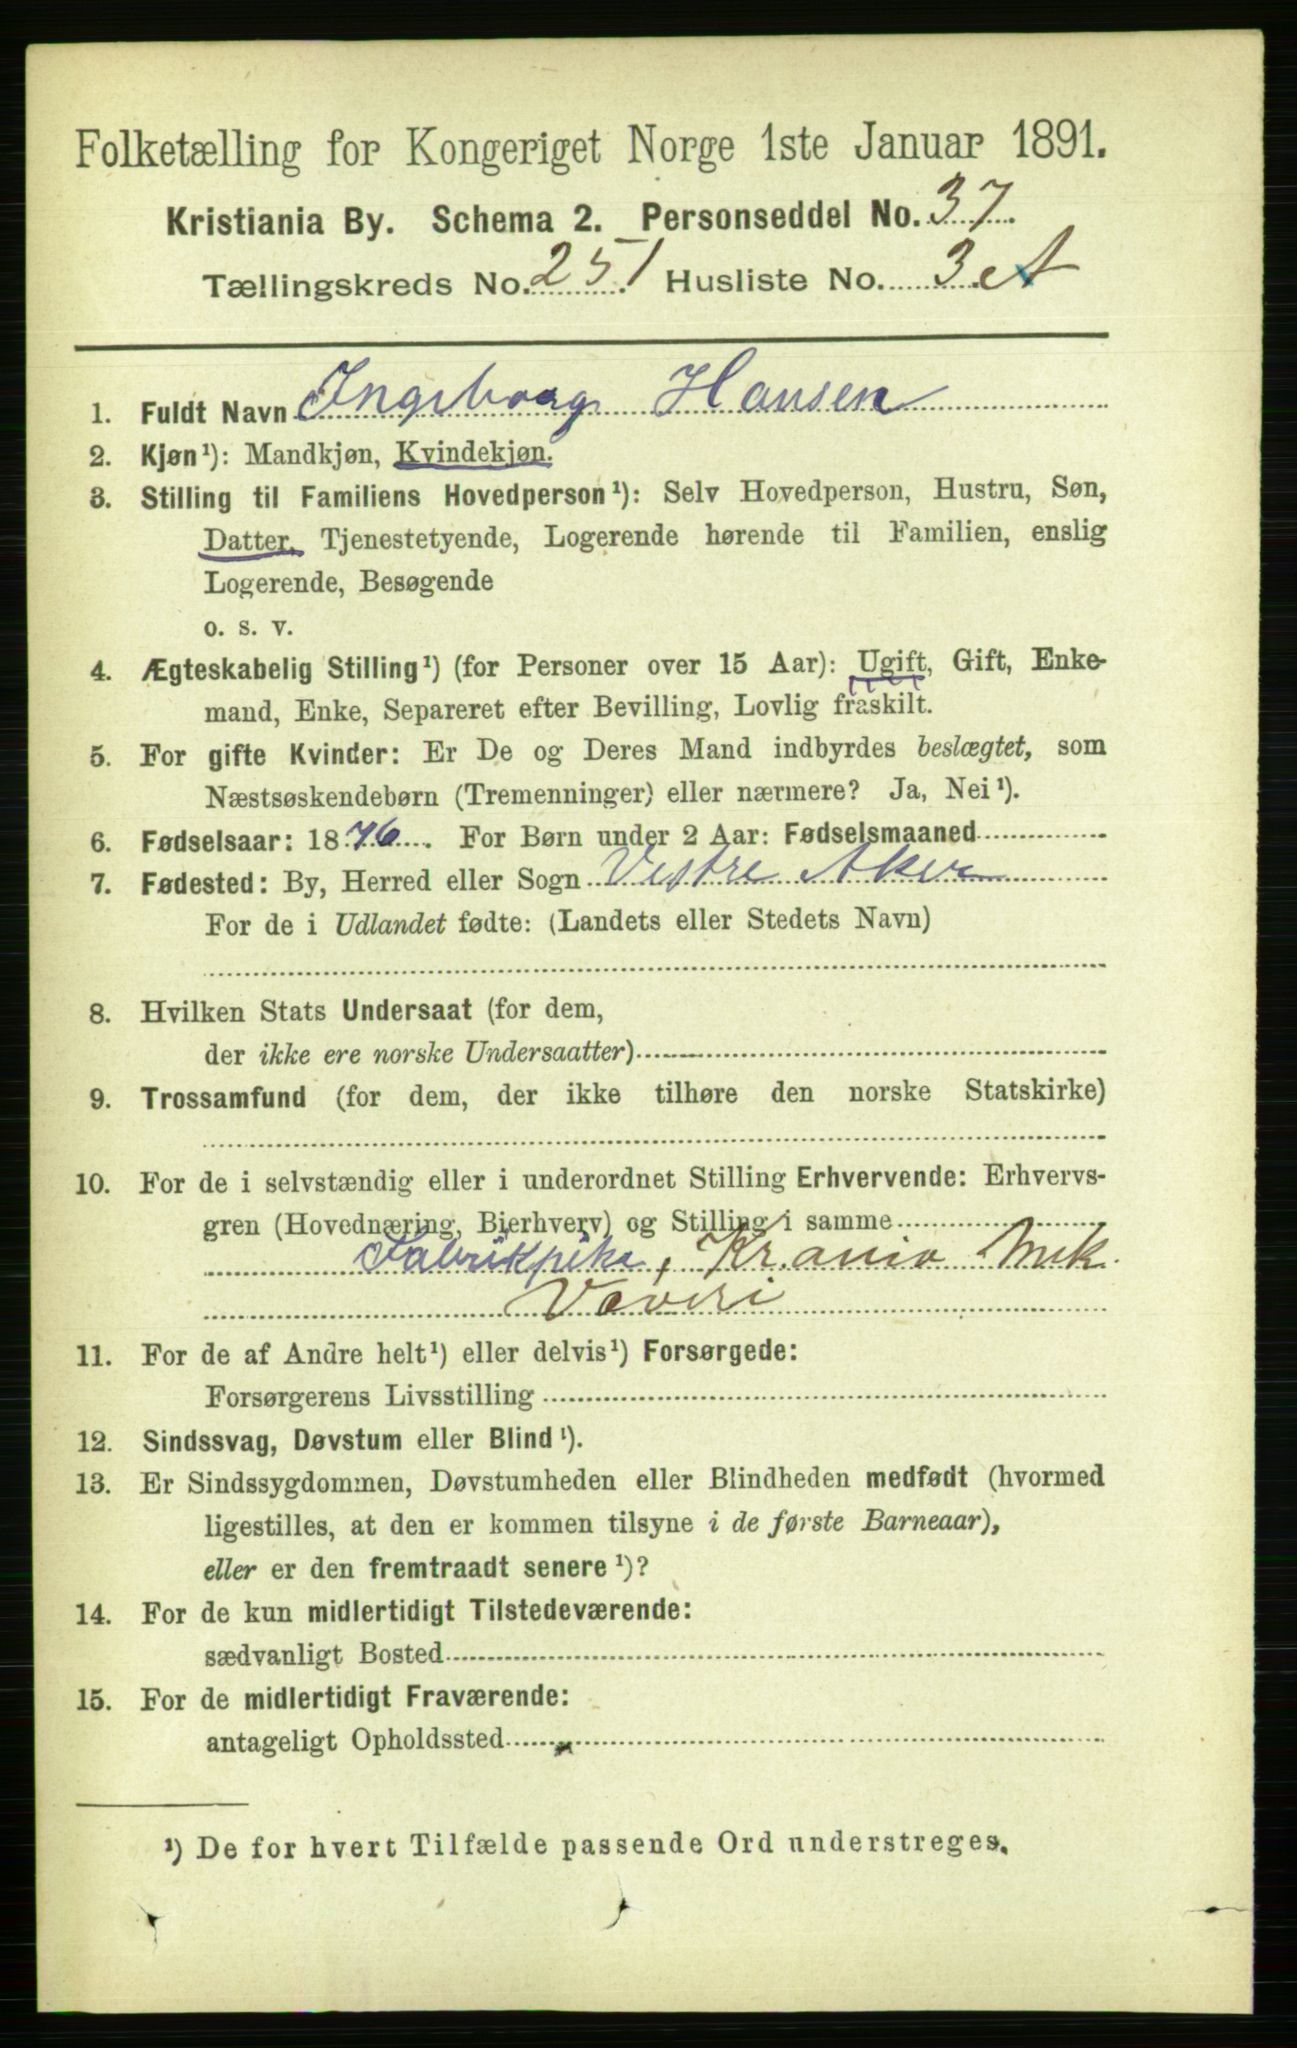 Folketælling for Kongeriget Norge 1ste Januar 1891.
Kristiania By. Schema 2. Personseddel No. 37
Tællingskreds No. 251 Husliste No. 3 A
1. Fuldt Navn Ingeborg Hansen
2. Kjøn¹): Mandkjøn, Kvindekjøn.
3. Stilling til Familiens Hovedperson¹): Selv Hovedperson, Hustru, Søn,
Datter, Tjenestetyende, Logerende hørende til Familien, enslig
Logerende, Besøgende
o. s. v.
4. Ægteskabelig Stilling¹) (for Personer over 15 Aar): Ugift, Gift, Enke-
mand, Enke, Separeret efter Bevilling, Lovlig fraskilt.
5. For gifte Kvinder: Er De og Deres Mand indbyrdes beslægtet, som
Næstsøskendebørn (Tremenninger) eller nærmere? Ja, Nei¹).
6. Fødselsaar: 1876. For Børn under 2 Aar: Fødselsmaaned
7. Fødested: By, Herred eller Sogn Vestre Aker
For de i Udlandet fødte: (Landets eller Stedets Navn)
8. Hvilken Stats Undersaat (for dem,
der ikke ere norske Undersaatter)
9. Trossamfund (for dem, der ikke tilhøre den norske Statskirke)
10. For de i selvstændig eller i underordnet Stilling Erhvervende: Erhvervs-
gren (Hovednæring, Bierhverv) og Stilling i samme
Fabrikpike, Kr.ania Mek.
Væveri
11. For de af Andre helt¹) eller delvis¹) Forsørgede:
Forsørgerens Livsstilling
12. Sindssvag, Døvstum eller Blind¹).
13. Er Sindssygdommen, Døvstumheden eller Blindheden medfødt (hvormed
ligestilles, at den er kommen tilsyne i de første Barneaar),
eller er den fremtraadt senere¹)?
14. For de kun midlertidigt Tilstedeværende:
sædvanligt Bosted
15. For de midlertidigt Fraværende:
antageligt Opholdssted
¹) De for hvert Tilfælde passende Ord understreges.